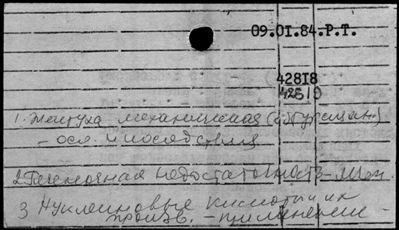 09.01.84.P.T.
42818
42519
1. Желтуха механическая (обтурацион.)
- осл. и последствия
2. Печеночная недостаточность - лечен.
3 Нуклеиновые кислоты и их
произв. - применение -